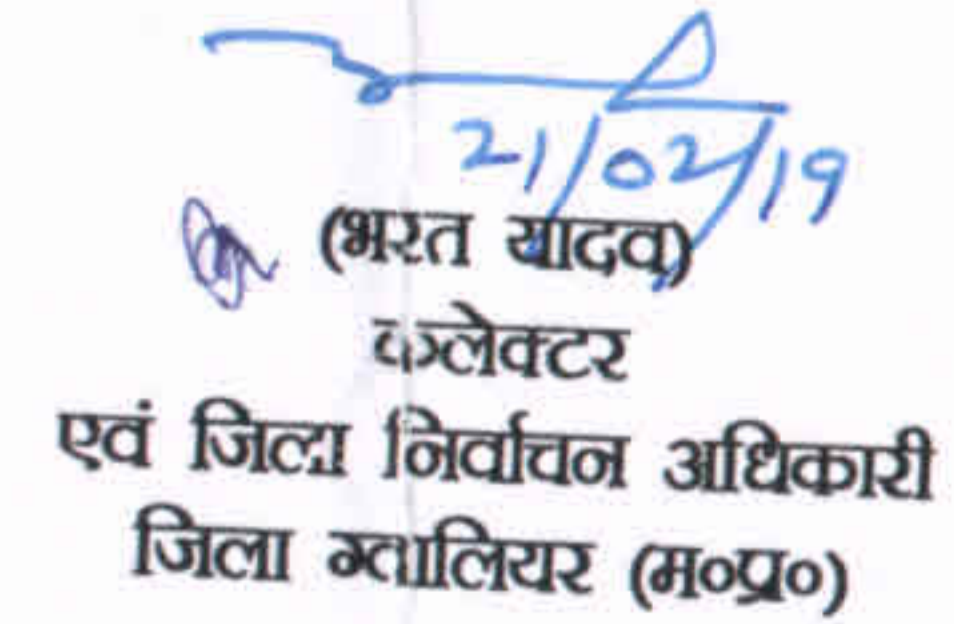 21/02/19
(भरत यादव)
कलेक्टर
एवं जिला निर्वाचन अधिकारी
जिला ग्वालियर (म०प्र०)